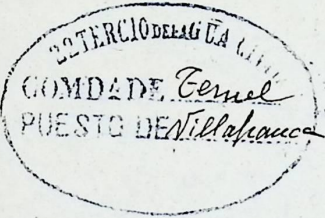 22 TERCIO DE LA GUA CIVIL
COMDA DE Teruel
PUESTO DE Villafranca